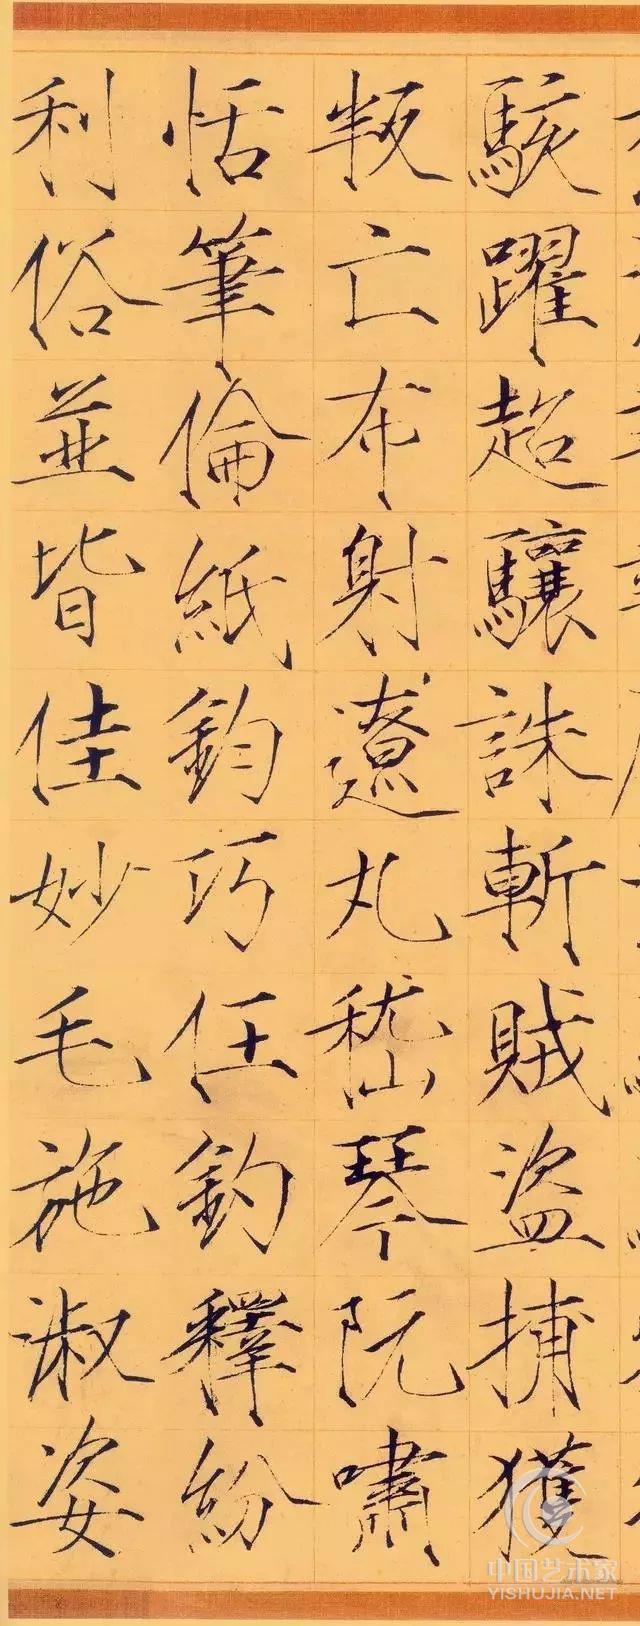 駭躍超驤誅斬賊盜捕獲
叛亡布射遼丸嵇琴阮嘯
恬筆倫紙鈞巧任釣釋紛
利俗並皆佳妙毛施淑姿
中国艺术家
YISHUJIA.NET